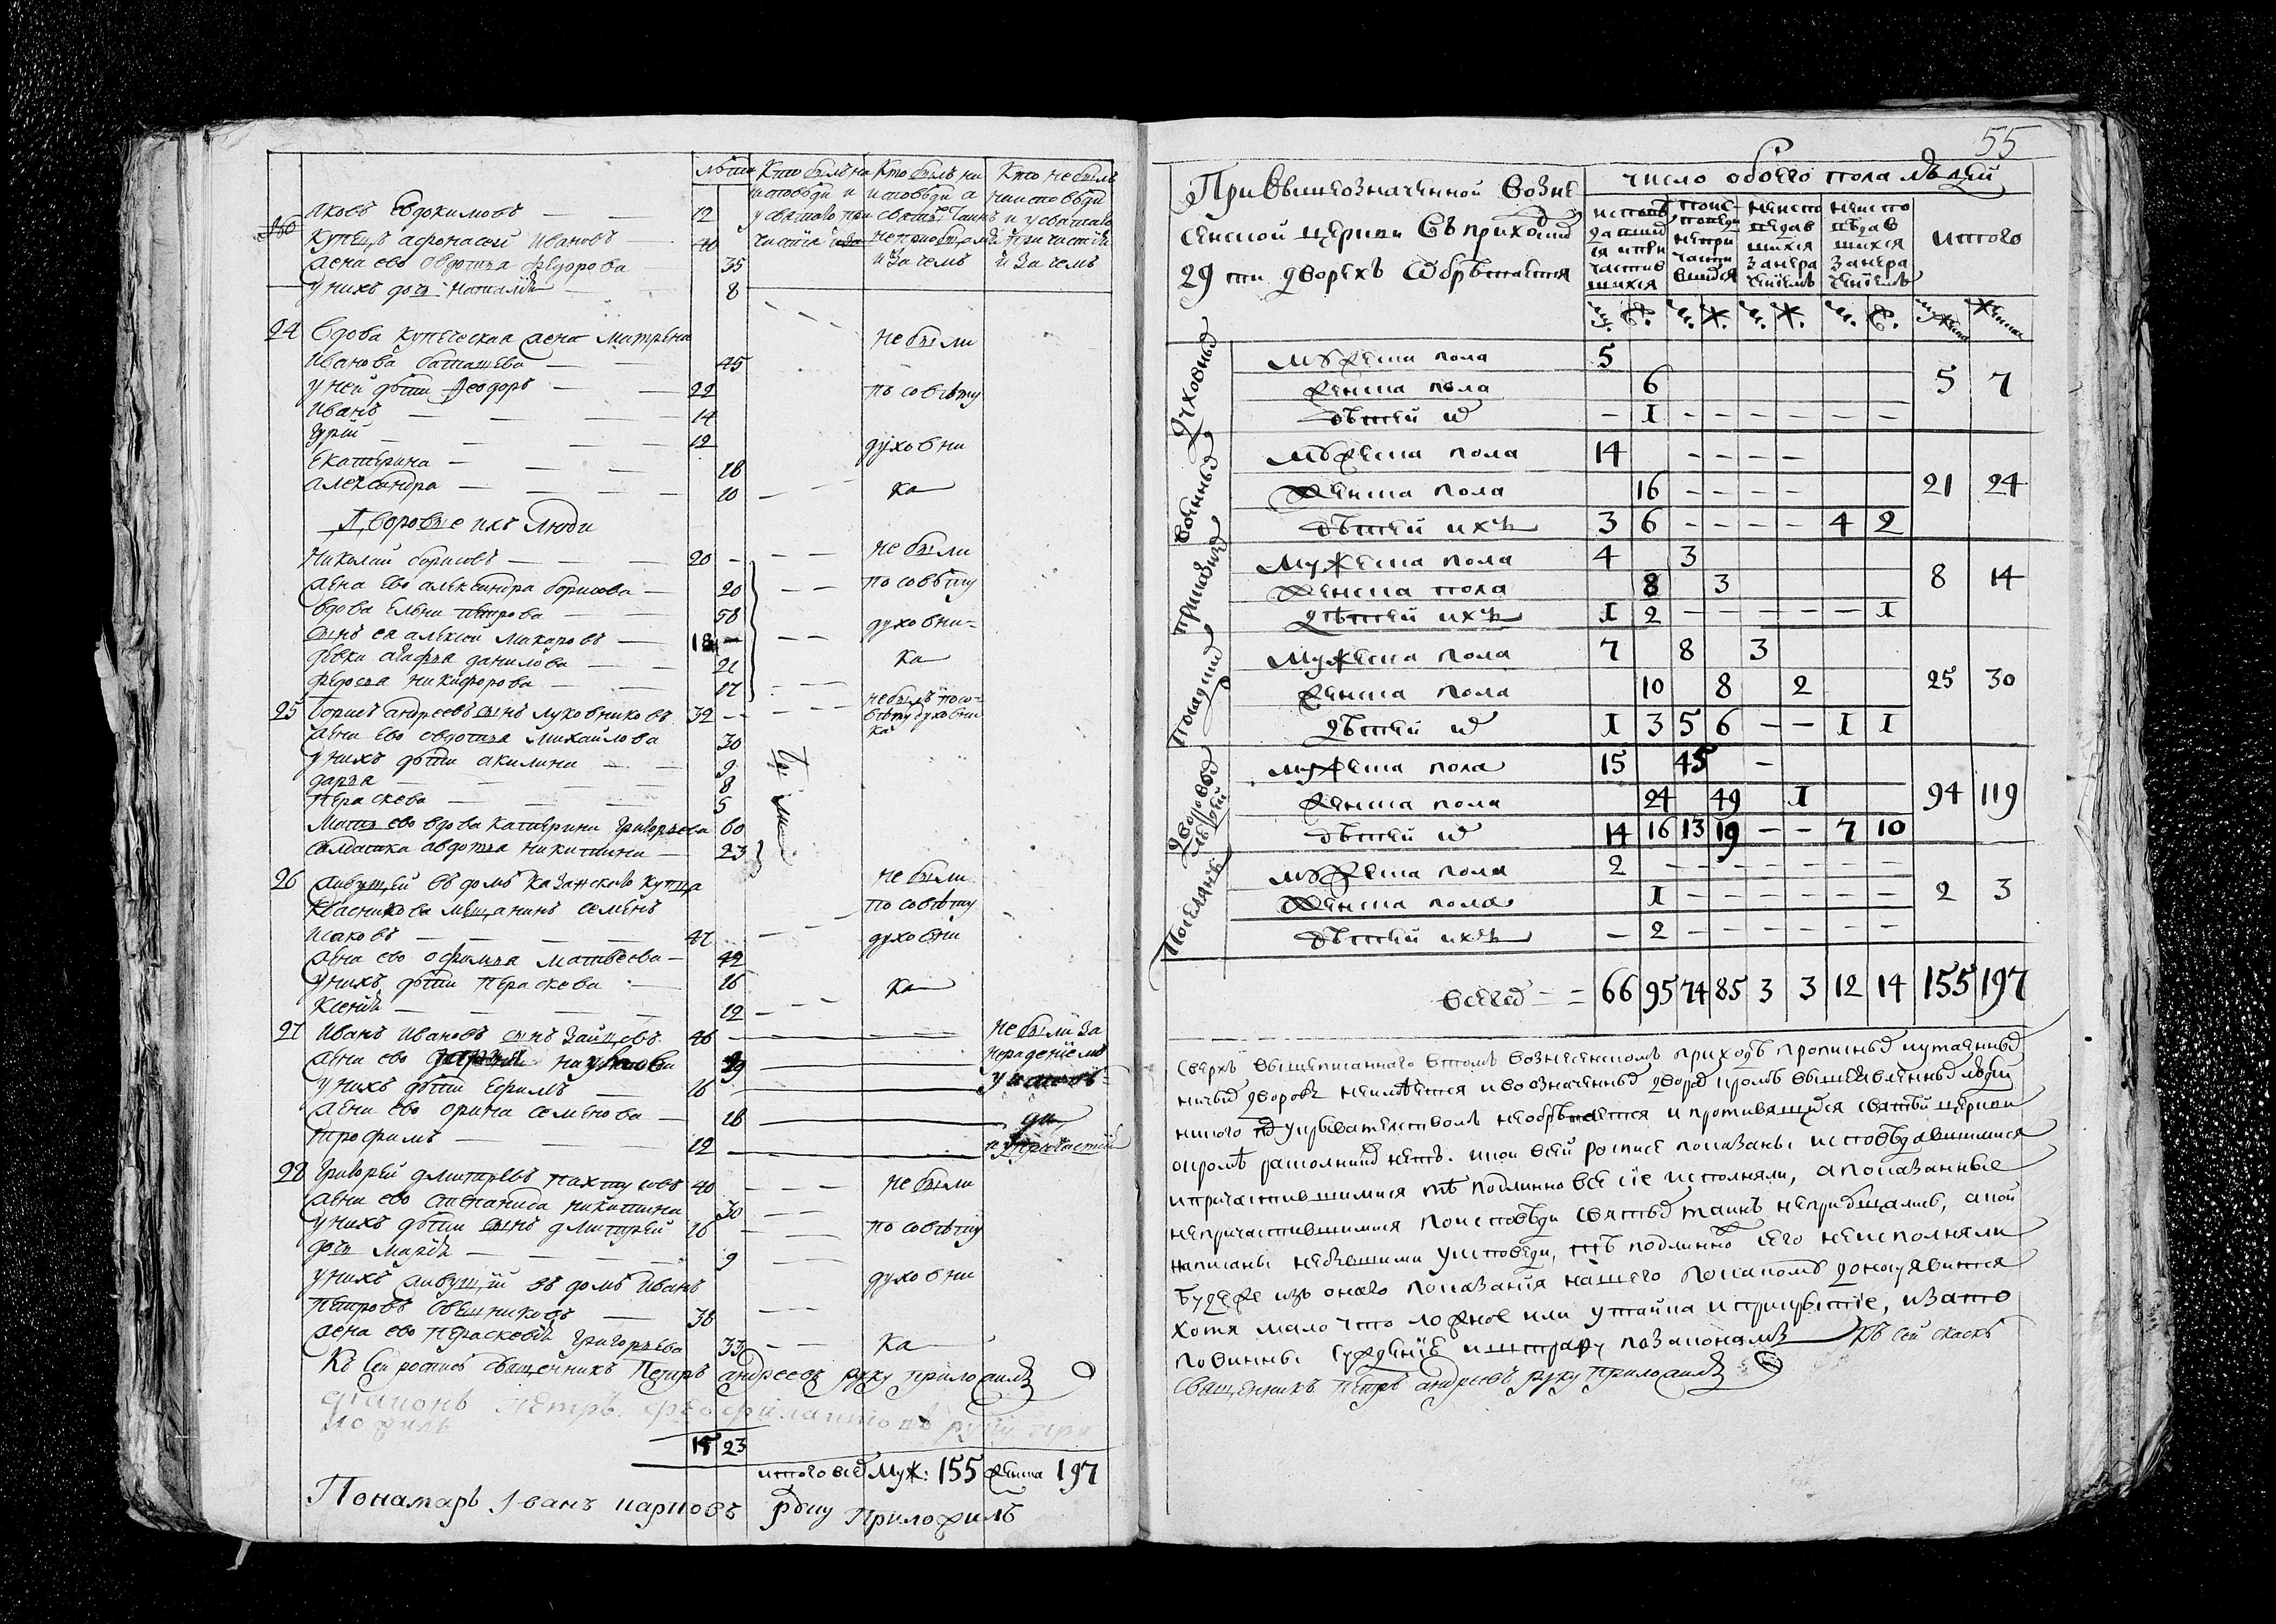 лѣта Кто былъ на исповѣди и у святаго причастія Кто былъ на исповѣди а святыхъ таинъ не приобщался и за чемъ Кто не былъ на исповѣди и у святаго причастія и за чемъ
Яковъ Евдокимовъ — 12
Купецъ Афонасей Ивановъ — 40
жена ево Овдотья Федорова — 35
у нихъ дочь Наталія — 8
24 Вдова купеческая жена Матрена не были
Иванова — 45
у ней дѣти Феодоръ — 22 по совѣту
Иванъ — 14
Гурій — 12 духовни
Екатерина — 18
Александра — 10 ка
Дворовые ихъ люди
Николай Борисовъ — 20 не были
жена ево Александра Борисова — 20 по совѣту
вдова Елена Петрова — 58
сынъ ея Алексей Макаровъ — 18 духовни=
дѣвки Агафья Данилова — 21 ка
Федосья Никифорова — 17
25 Борисъ Андреевъ сынъ Луковниковъ 32 не былъ по со=вѣту духовника
жена ево Овдотья Михайлова 30
у нихъ дѣти Акилина — 9
Дарья — 8
Параскева — 5
Мать ево вдова Катерина Григорьева 60
Салдатка Авдотья Никитина — 23
26 живущей въ домѣ Казанского купца не были
мещанинъ Семенъ по совѣту
Исаковъ — 47 духовни
жена ево Офимья Матвѣева — 42
у нихъ дѣти Параскева — 16 ка
Ксенія — 12
27 Иванъ Ивановъ сынъ Зайцевъ 46 не были за
жена ево Наумова 39 нерадениемъ
у нихъ дѣти Ефимъ — 16 у исповѣ=
жена ево Орина Семенова — 18 ди
Трофимъ — 12 и у причастія
28 Григорей Дмитревъ 40 не были
жена ево Степанида Никитина 30
у нихъ дѣти сынъ Дмитрей 16 по совѣту
дочь Марія — 9
у нихъ живущій въ домѣ Иванъ духовни
Петровъ Свешниковъ — 38
жена ево Параскевія Григорьева 33 ка
Къ сей росписѣ священникъ Петръ Андреевъ руку приложилъ
диаконъ Петръ Феофилактовъ руку при
ложилъ
15 23
итого всѣхъ муж: 155 женска 197
Пономарь Iванъ Карповъ руку приложилъ
55
При вышеозначенной Вознесенской церкви въ приходѣ 29 ти дворехъ обрѣтается
число обоего пола людей
исповѣдавшихся и причастившихся
исповѣдавшихся не причастившихся
не исповѣдавшихся за нерадѣніемъ
итого
м. ж. м. ж. м. ж. м. ж. мужеска женска
Духовныхъ
Мужеска пола 5
Женска пола 6 5 7
дѣтей их — 1 — — — — — —
Военныхъ
Мужеска пола 14 — — — —
Женска пола 16 — — — — 21 24
дѣтей ихъ 3 6 — — — — 4 2
Приказныхъ
Мужеска пола 4 3
Женска пола 8 3 8 14
дѣтей ихъ 1 2 — — — — — 1
Посадцкихъ
Мужеска пола 7 8 3
Женска пола 10 8 2 25 30
дѣтей их 1 3 5 6 — — 1 1
Дворовыхъ людей
Мужеска пола 15 45 —
Женска пола 24 49 1 94 119
дѣтей их 14 16 13 19 — — 7 10
Поселянъ
Мужеска пола 2 — — — — — — —
Женска пола 1 — — — — — — 2 3
дѣтей ихъ — 2 — — — — — —
Всего = 66 95 74 85 3 3 12 14 155 197
Сверхъ вышеписаннаго в томъ Вознесенскомъ приходѣ прописныхъ и утаенныхъ
никакихъ дворовъ неимѣется и во означенныхъ дворахъ кромѣ вышеявленныхъ людей
никого под укрывательствомъ необрѣтается и противящихся святѣй церкви
окромѣ раскольниковъ нетъ. и кои в сей росписе показаны исповѣдавшимися
и причастившимися тѣ подлинно все сіе исполняли, а показанные
непричастившимися по исповѣди святыхъ таинъ неприобщались, а кои
написаны небывшими у исповеди, тѣ подлинно сего неисполняли
будеже изъ онаго показанія нашего по какомъ доносу явится
хотя мало что ложное или утайка и прикрытіе, и за то
повинны суждению и штрафу по законамъ Къ сей скаскѣ
священникъ Петръ Андреевъ руку приложилъ